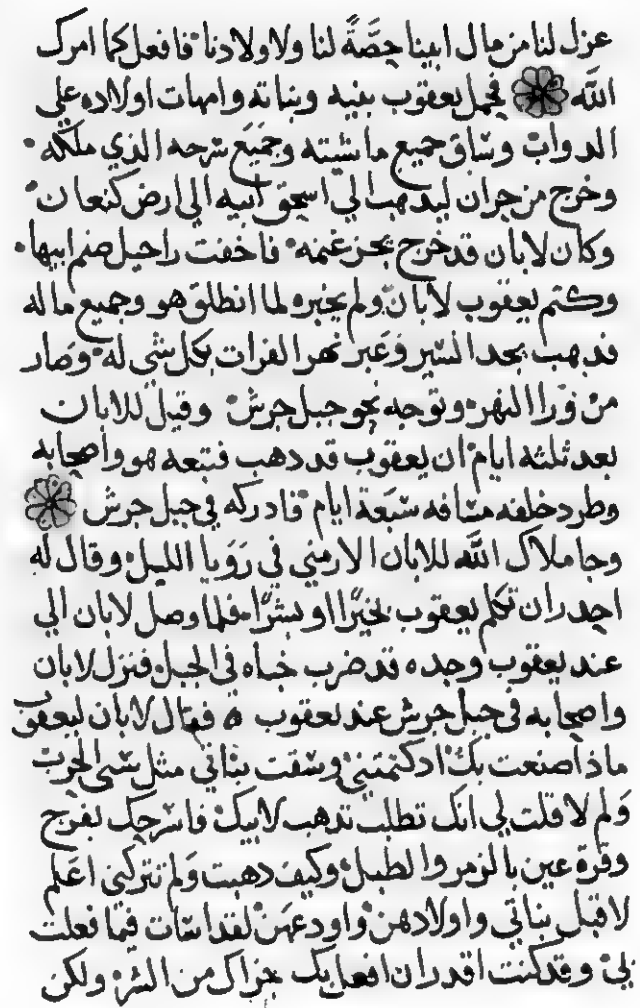 عزل لنا من مال ابينا حصَّةً لنا ولاولادنا فافعل كما امرك
الله فحمل يعقوب بنيه وبناته وامهات اولاده علي
الدواب وساق جميع ماشيته وجميع سرحه الذي ملكه
وخرج من حران ليدهب الي اسحق ابيه الي ارض كنعان
وكان لابان قد خرج يجز غنمه فاخفت راحيل صنم ابيها
وكتم يعقوب لابان ولم يخبره لما انطلق هو وجميع ماله
فدهب يجد السير وعبر نهر الفرات بكل شي له وصار
من ورا النهر وتوجه نحو جبل جرش وقيل للابان
بعد ثلثه ايام ان يعقوب قد دهب فتبعه هو واصحابه
وطرد خلفه مسافه سبعة ايام فادركه في جبل جرش
وجا ملاك الله للابان الارمني في رويا الليل وقال له
احدر ان تكلم يعقوب بخيرًا او بشرًا فلما وصل لابان الي
عند يعقوب وجده قد ضرب خباه في الجبل فنزل لابان
واصحابه في جبل جرش عند يعقوب فقال لابان ليعقوب
ماذا صنعت بك اد كتمتني وسقت بناتي مثل سبي الحرب
ولم لا قلت لي انك تطلب تدهب لابيك فاسرحك بفرح
وقرة عين بالزمر والطبل وكيف دهبت ولم تتركني اعلم
لاقبل بناتي واولادهن واودعهن لقد اسات فيما فعلت
بي وقد كنت اقدر ان افعل بك جزاك من الشر ولكن